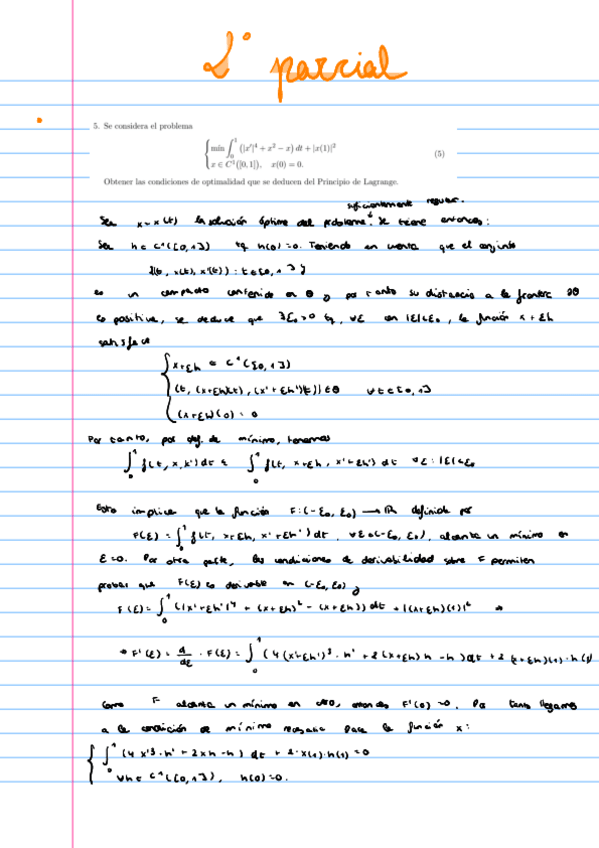 2º parcial
5. Se considera el problema
{ min ∫₀¹ (|x'|⁴ + x² − x) dt + |x(1)|²
x ∈ C¹([0,1]), x(0) = 0. (5)
Obtener las condiciones de optimalidad que se deducen del Principio de Lagrange.
suficientemente regular.
Sea x = x(t) la solución óptima del problema. Se tiene entonces:
Sea h ∈ C¹([0,1]) tq h(0)=0. Teniendo en cuenta que el conjunto
{(t, x(t), x'(t)) : t ∈ [0,1]}
es un compacto contenido en θ y por tanto su distancia a la frontera ∂θ
es positiva, se deduce que ∃ε₀>0 tq, ∀ε con |ε|<ε₀, la función x+εh
satisface
{ x+εh ∈ C¹([0,1])
(t, (x+εh)(t), (x'+εh')(t)) ∈ θ ∀t ∈ [0,1]
(x+εh)(0) = 0
Por tanto, por def. de mínimo, tenemos
∫₀¹ f(t, x, x') dt ≤ ∫₀¹ f(t, x+εh, x'+εh') dt ∀ε : |ε|<ε₀
Esto implica que la función F: (-ε₀, ε₀) → ℝ definida por
F(ε) = ∫₀¹ f(t, x+εh, x'+εh') dt, ∀ε ∈ (-ε₀, ε₀), alcanza un mínimo en
ε=0. Por otra parte, las condiciones de derivabilidad sobre F permiten
probar que F(ε) es derivable en (-ε₀, ε₀) y
F(ε) = ∫₀¹ (|x'+εh'|⁴ + (x+εh)² − (x+εh)) dt + |(x+εh)(1)|² ⇒
⇒ F'(ε) = d/dε · F(ε) = ∫₀¹ (4(x'+εh')³ · h' + 2(x+εh)h − h) dt + 2 (x+εh)(1) · h(1)
Como F alcanza un mínimo en cero, entonces F'(0) = 0. Por tanto llegamos
a la condición de mínimo necesaria para la función x:
{ ∫₀¹ (4x'³ · h' + 2xh − h) dt + 2 · x(1) · h(1) = 0
∀h ∈ C¹([0,1]), h(0)=0.